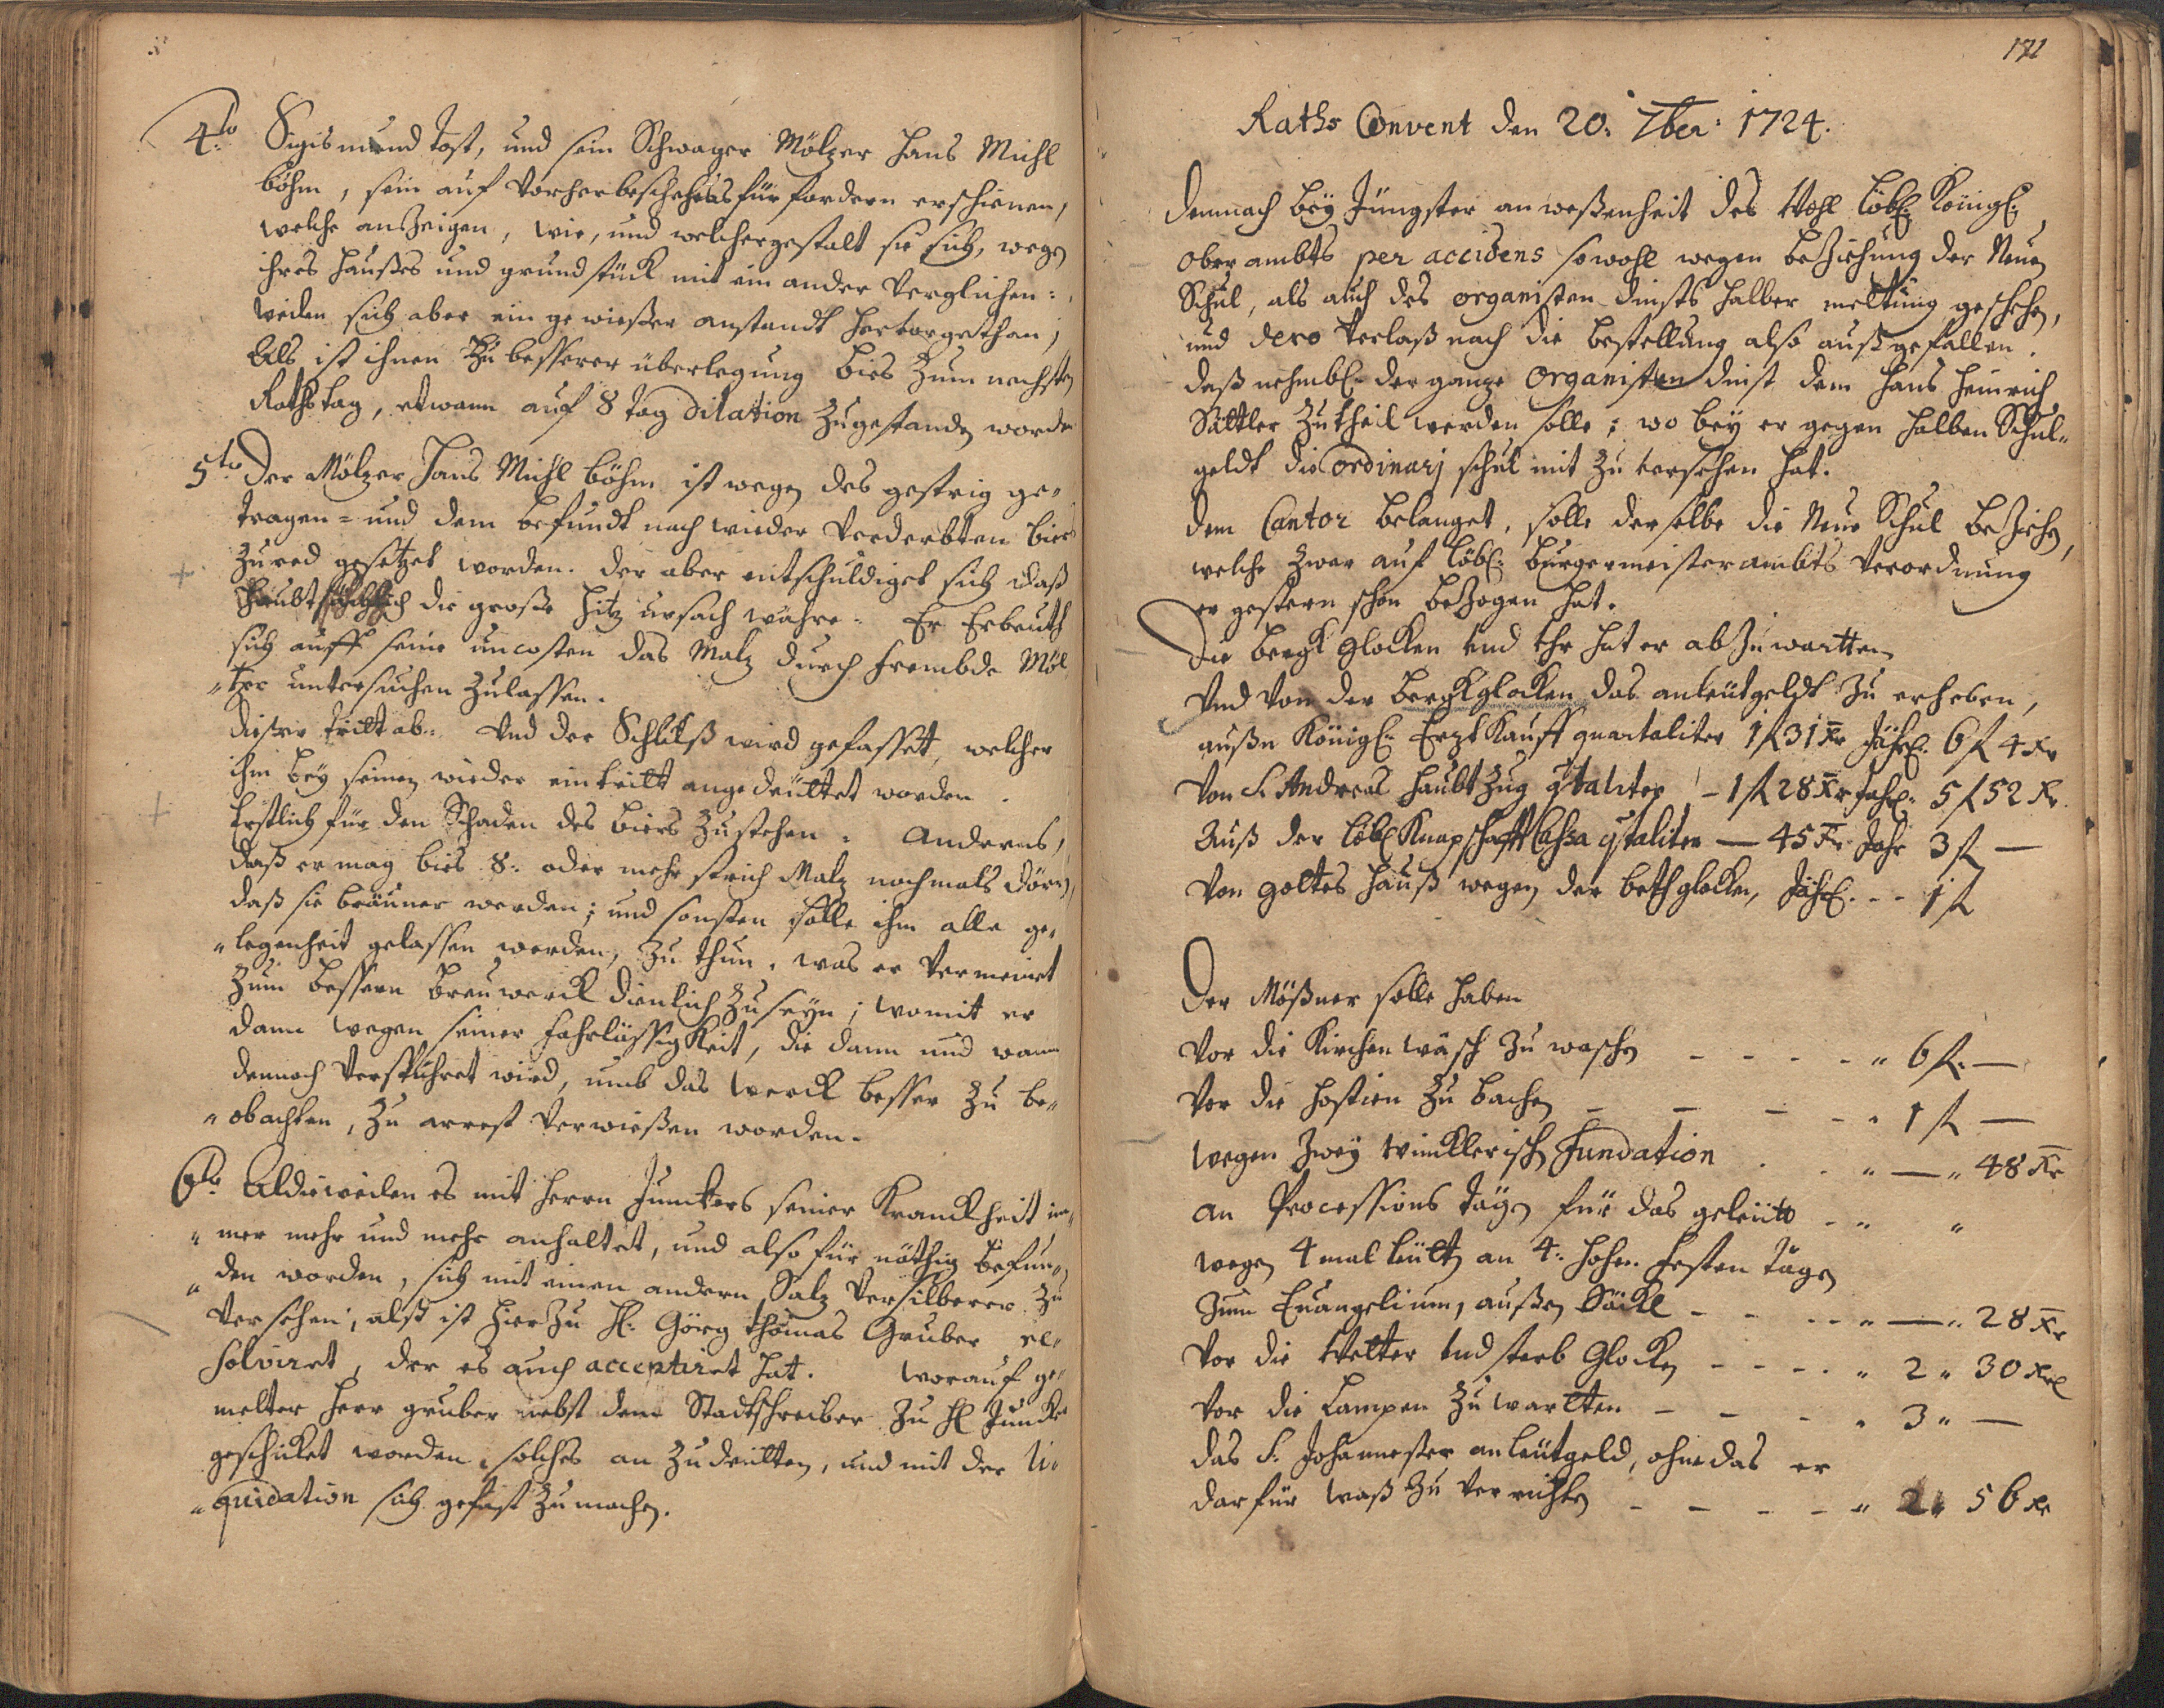 4to Sigismund Tost, und sein Schwager Mölzer Hans Michl
böhm, sein auf vorherbeschehenes fürfordern erschienen,
welche anzeigen, wie, und welchergestalt sie sich, wegen
ihres Haußes und grundstück mit ein ander verglichen:
weilen sich aber ein gewießer anstandt hervorgethan,
Als ist ihnen zu besserer überlegung bies zum nechsten
Rathstag, etwann auf 8 tag dilation zugestanden worden
5to Der Mölzer Hans Michl Böhm ist wegen des gestrig ge„
tragen= und dem befundt nach wieder verderbten biers
zured gesetzet worden. der aber entschuldiget sich daß
haubtsächlich die große Hitz ursach wahre. Er Erbeuth
sich auff seine uncosten das Malz durch frembde Möl
„tzer untersuchen zulassen.
Dießer tritt ab. Und der Schluß wird gefasset, welcher
ihm bey seinem wieder eintritt angedeuttet worden.
Erstlich für den Schaden des biers zustehen. Anderns,
daß er mag bies 8: oder mehr strich Malz nochmals dören,
daß sie breuner werden; und sonsten solle ihm alle ge„
„legenheit gelassen werden, zu thun, was er vermeinet
zum bessern breuwerck dienlich zuseyn; womit er
dann wegen seiner fahrlässigkeit, die dann und wann
dennoch verspühret wird, umb das werck besser zu be„
„obachten, zu arrest verwießen worden.
6to Aldieweilen es mit herrn Junckers seiner Kranckheit im„
„mer mehr und mehr anhaltet, und also für nöthig befun„
„den worden, sich mit einen andern Salz versilberer zu
versehen, alß ist hierzu H: Görg Thomas Gruber re„
solviret, der es auch acceptiret hat. worauf ge„
melter Herr gruber nebst dem Stadtschreiber zu H Juncker
geschicket worden, solches an zudeutten, und mit der li„
„quidation sich gefast zumachen.
Raths Convent den 20: 7ber: 1724.
Demnach bey Jüngster anweßenheit des Wohl löbl: Königl:
Oberambts per accidens sowohl wegen beziehung der Neuen
Schul, als auch des organisten dinsts halber meltung geschehen,
und dero verlaß nach die bestellung also außgefallen.
daß nehmbl: der ganze Organisten dinst dem Hans Heinrich
Sattler zutheil werden solle; wo bey er gegen halben Schul„
geldt die ordinarj schul mit zu versehen hat.
dem Cantor belanget, solle derselbe die Neue Schul beziehen,
welche zwar auf löbl: burgermeisterambts verordnung
er gestern schon bezogen hat.
Die bergk glocken und Uhr hat er ab zu wartten
Und von der bergkglocken das anleutgeldt zu erheben,
außn Königl: Erzt Kauff quartaliter 1 f 31 kr Jährl: 6 f 4 kr
von S. Andreas haubtzug qtaliter – 1 f 28 kr Jahrl: 5 f 52 kr.
Auß der löbl Knapschafft Cassa qtaliter — 45 kr Jahr 3 f —
von gottes hauß wegen der bethglocken, Jährl. - - - 1 f
Der Mößner solle haben
vor die Kirchen wäsch zu waschen - - - - „ 6 f. —
vor die hostien zu bachen - - - - „ 1 f —
wegen zwey wincklerisch Fundation . . „ — „ 48 kr
an Processions tägen für das geleüt - „ „
wegen 4 mal leüten an 4: hohen festen tägen
zum Euangelium, außen Säckl - - - - „ — „ 28 kr
vor die Wetter und sterb Glocken - - - - „ 2 „ 30 kr
vor die Lampen zu wartten - - - „ 3 „ —
das S. Johannester anleütgeld, ohne das er
darfür waß zu verrichten - - - - „ 2 „ 56 kr